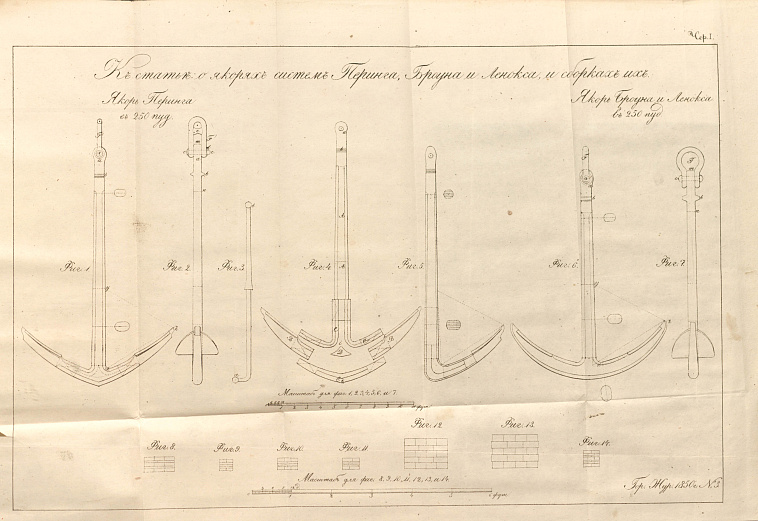 Стр. 1.
Къ статьѣ: о якоряхъ системъ Перинга, Броуна и Ленокса, и сборкахъ ихъ.
Якорь Перинга
въ 250 пуд.
Якорь Броуна и Ленокса
въ 250 пуд
Фиг. 1
Фиг. 2
Фиг. 3
Фиг. 4
Фиг. 5
Фиг. 6.
Фиг. 7.
Масштабъ для фиг. 1, 2, 3, 4, 5, 6, и 7.
фут.
Фиг. 8.
Фиг. 9.
Фиг. 10
Фиг. 11
Фиг. 12
Фиг. 13
Фиг. 14.
Масштабъ для фиг. 8, 9, 10, 11, 12, 13, и 14
6 фут.
Гр. Жур. 1850 г. № 3